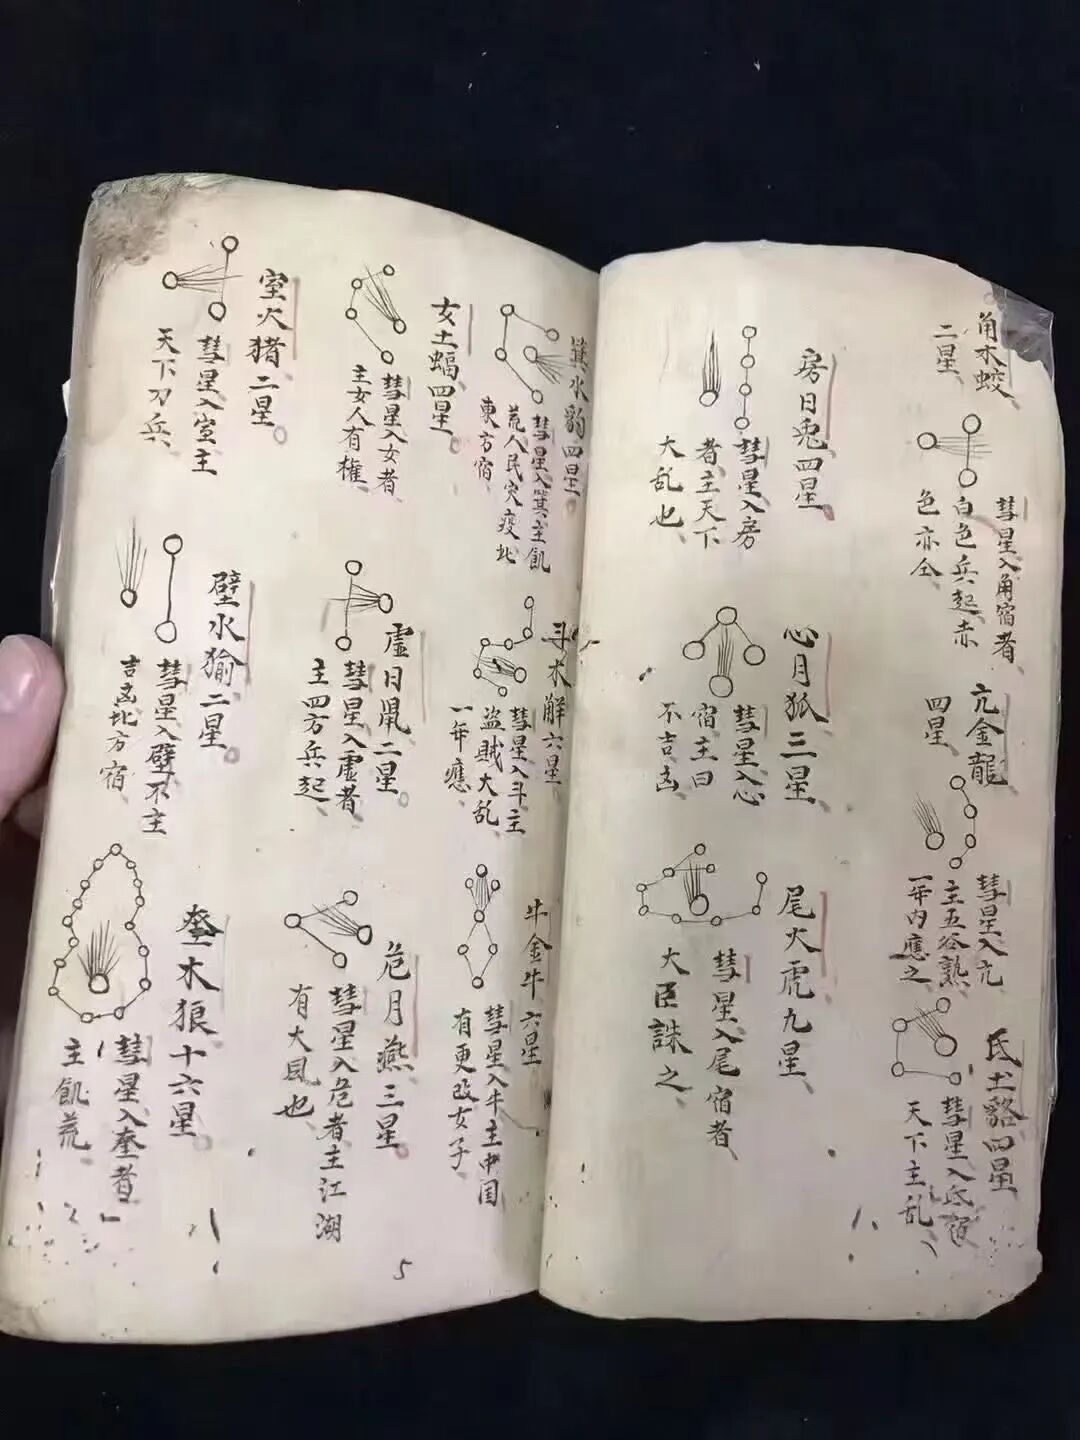 角木蛟
二星
彗星入角宿者
白色兵起赤
色亦仝
亢金龍
四星
彗星入亢
主五谷熟
一年内應之
氐土貉四星
彗星入氐宿
天下主乱
房日兎四星
彗星入房
者主天下
大乱也
心月狐三星
彗星入心
宿主曰
不吉凶
尾火虎九星
彗星入尾宿者
大臣誅之
箕水豹四星
彗星入箕主飢
荒人民灾疫北
東方宿
斗木獬六星
彗星入斗主
盗賊大乱
一年應
牛金牛六星
彗星入牛主中国
有更改女子
女土蝠四星
彗星入女者
主女人有權
虛日鼠二星
彗星入虛者
主四方兵起
危月燕三星
彗星入危者主江湖
有大風也
室火猪二星
彗星入室主
天下刀兵
壁水㺄二星
彗星入壁不主
吉凶北方宿
奎木狼十六星
彗星入奎者
主飢荒
5